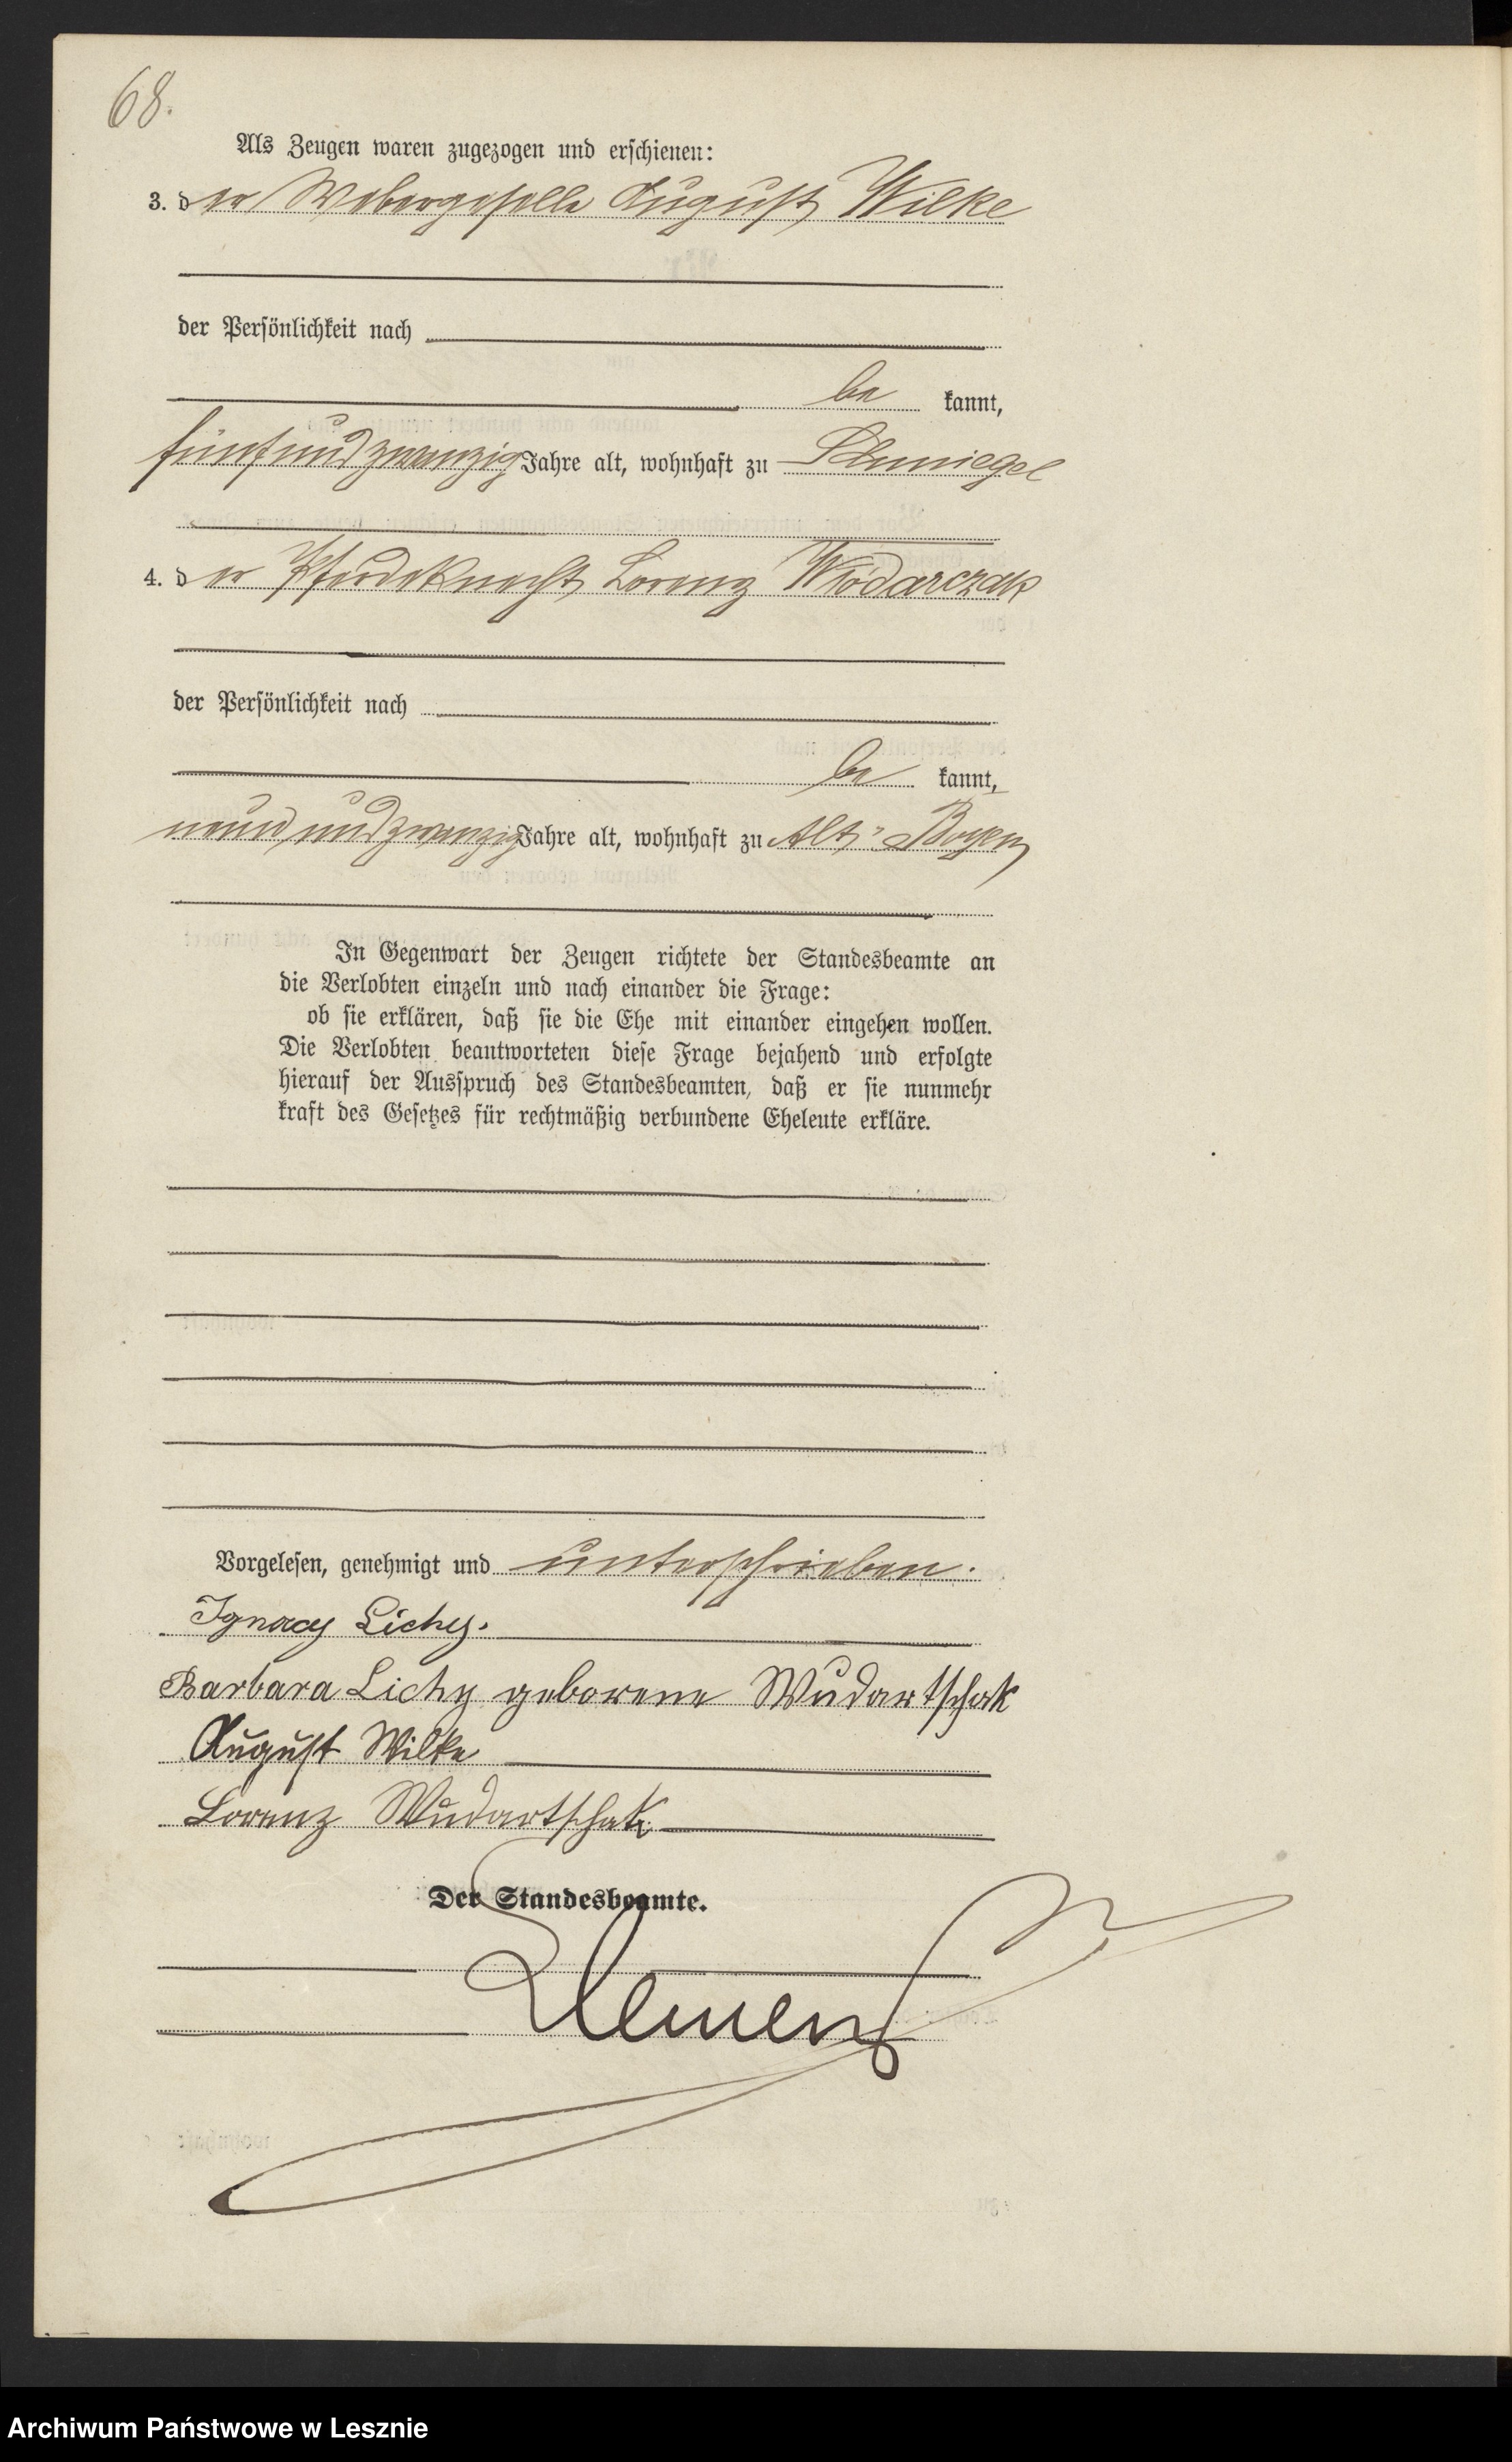 68.
Als Zeugen waren zugezogen und erschienen:
3. der Webergeselle August Wilke
der Persönlichkeit nach
be kannt,
fünfundzwanzig Jahre alt, wohnhaft zu Schmiegel
4. der Pferdeknecht Lorenz Włódarczak
der Persönlichkeit nach
be kannt,
neunundzwanzig Jahre alt, wohnhaft zu Alt-Boyen
In Gegenwart der Zeugen richtete der Standesbeamte an
die Verlobten einzeln und nach einander die Frage:
ob sie erklären, daß sie die Ehe mit einander eingehen wollen.
Die Verlobten beantworteten diese Frage bejahend und erfolgte
hierauf der Ausspruch des Standesbeamten, daß er sie nunmehr
kraft des Gesetzes für rechtmäßig verbundene Eheleute erkläre.
Vorgelesen, genehmigt und unterschrieben.
Ignacy Lichy.
Barbara Lichy geborene Wudartschak
August Wilke
Lorenz Wudartschak
Der Standesbeamte.
Klemenz
Archiwum Państwowe w Lesznie